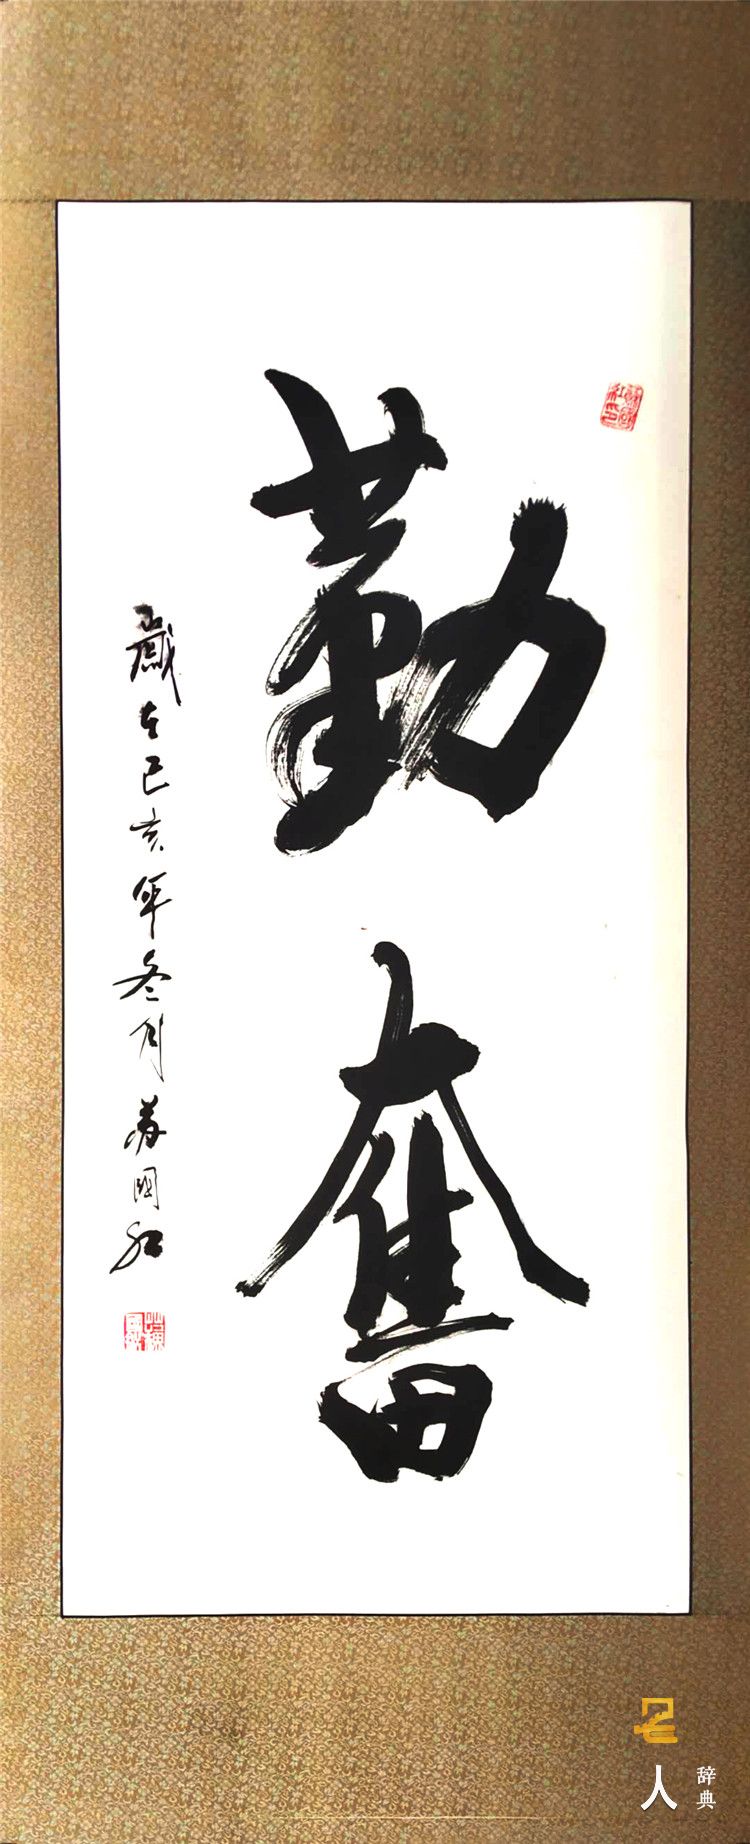 勤奮
歲在己亥年冬月蘇國紅
名人
辞典